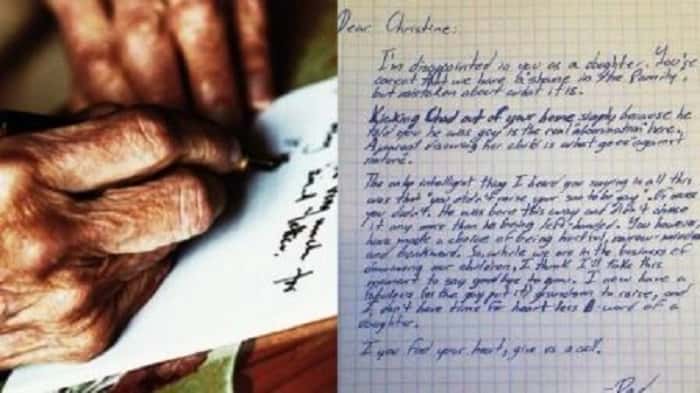 Dear Christine:
I'm disappointed in you as a daughter. You're
correct that we have a "shame in the family",
but mistaken about what it is.
Kicking Chad out of your home simply because he
told you he was gay is the real "abomination" here.
A parent disowning her child is what goes against
nature.
The only intelligent thing I heard you saying in all this
was that "you didn't raise your son to be gay". Of course
you didn't. He was born this way and didn't choose
it any more than he being left-handed. You however,
have made a choice of being hurtful, narrow-minded
and backward. So, while we are in the business of
disowning our children, I think I'll take this
moment to say goodbye to you. I now have a
fabulous (as the gay put it) grandson to raise, and
I don't have time for heart less B-word of a
daughter.
If you find your heart, give us a call.
-Dad